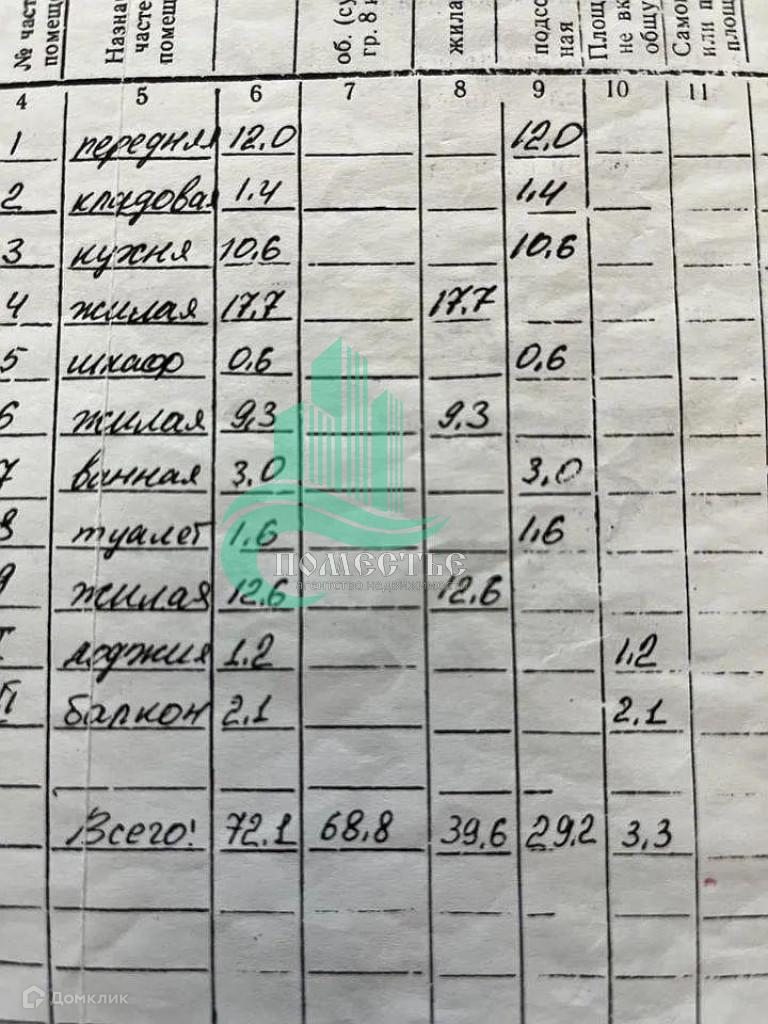 № част помещ
Назна частe помещ
об. (су гр. 8 и
жила
подсо ная
Площ не вк общу
Само или п площ
4 5 6 7 8 9 10 11
1 передняя 12.0 12.0
2 кладовая 1.4 1.4
3 кухня 10.6 10.6
4 жилая 17.7 17.7
5 шкаф 0.6 0.6
6 жилая 9.3 9.3
7 ванная 3.0 3.0
8 туалет 1.6 1.6
ПОМЕСТЬЕ
агентство недвижимости
9 жилая 12.6 12.6
I лоджия 1.2 1.2
II балкон 2.1 2.1
Всего: 72.1 68.8 39.6 29.2 3.3
Домклик